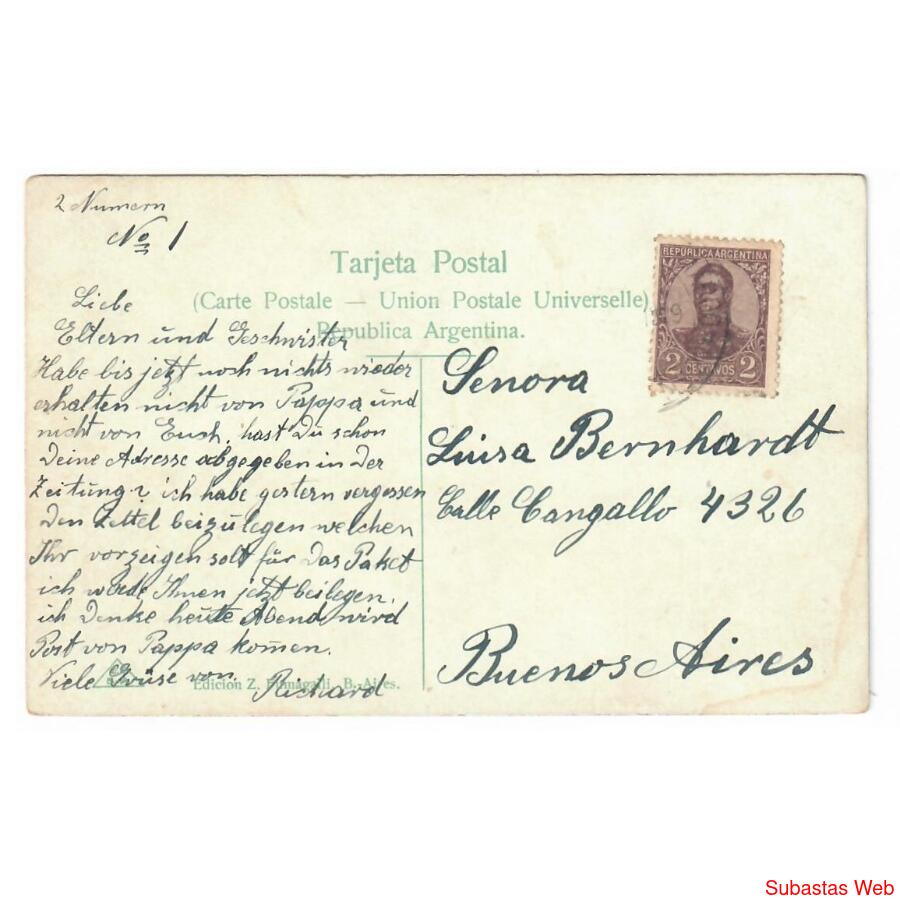 2 Numern
No 1
Tarjeta Postal
(Carte Postale — Union Postale Universelle)
Republica Argentina.
REPÚBLICA ARGENTINA
2 CENTAVOS 2
Liebe
Eltern und Geschwister
Habe bis jetzt noch nichts wieder
erhalten nicht von Pappa und
nicht von Euch, hast Du schon
Deine Adresse abgegeben in der
Zeitung? ich habe gestern vergessen
Den Zettel beizulegen welchen
Ihr vorzeigen solt für Das Paket
ich werde Ihnen jetzt beilegen.
ich Denke heute Abend wird
Post von Pappa komen.
Viele Grüse von
Richard
Senora
Luisa Bernhardt
Calle Cangallo 4326
Buenos Aires
Edición Z. Fumagalli, B. Aires.
Subastas Web